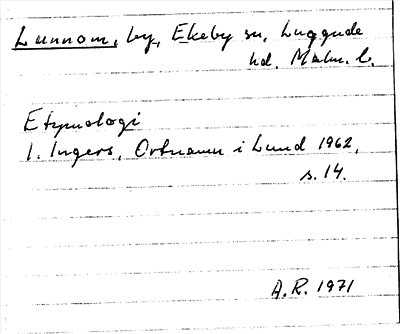 Lunnom, by, Ekeby sn, Luggude
hd. Malm. l.
Etymologi
I. Ingers, Ortnamn i Lund 1962,
s. 14.
A.R. 1971